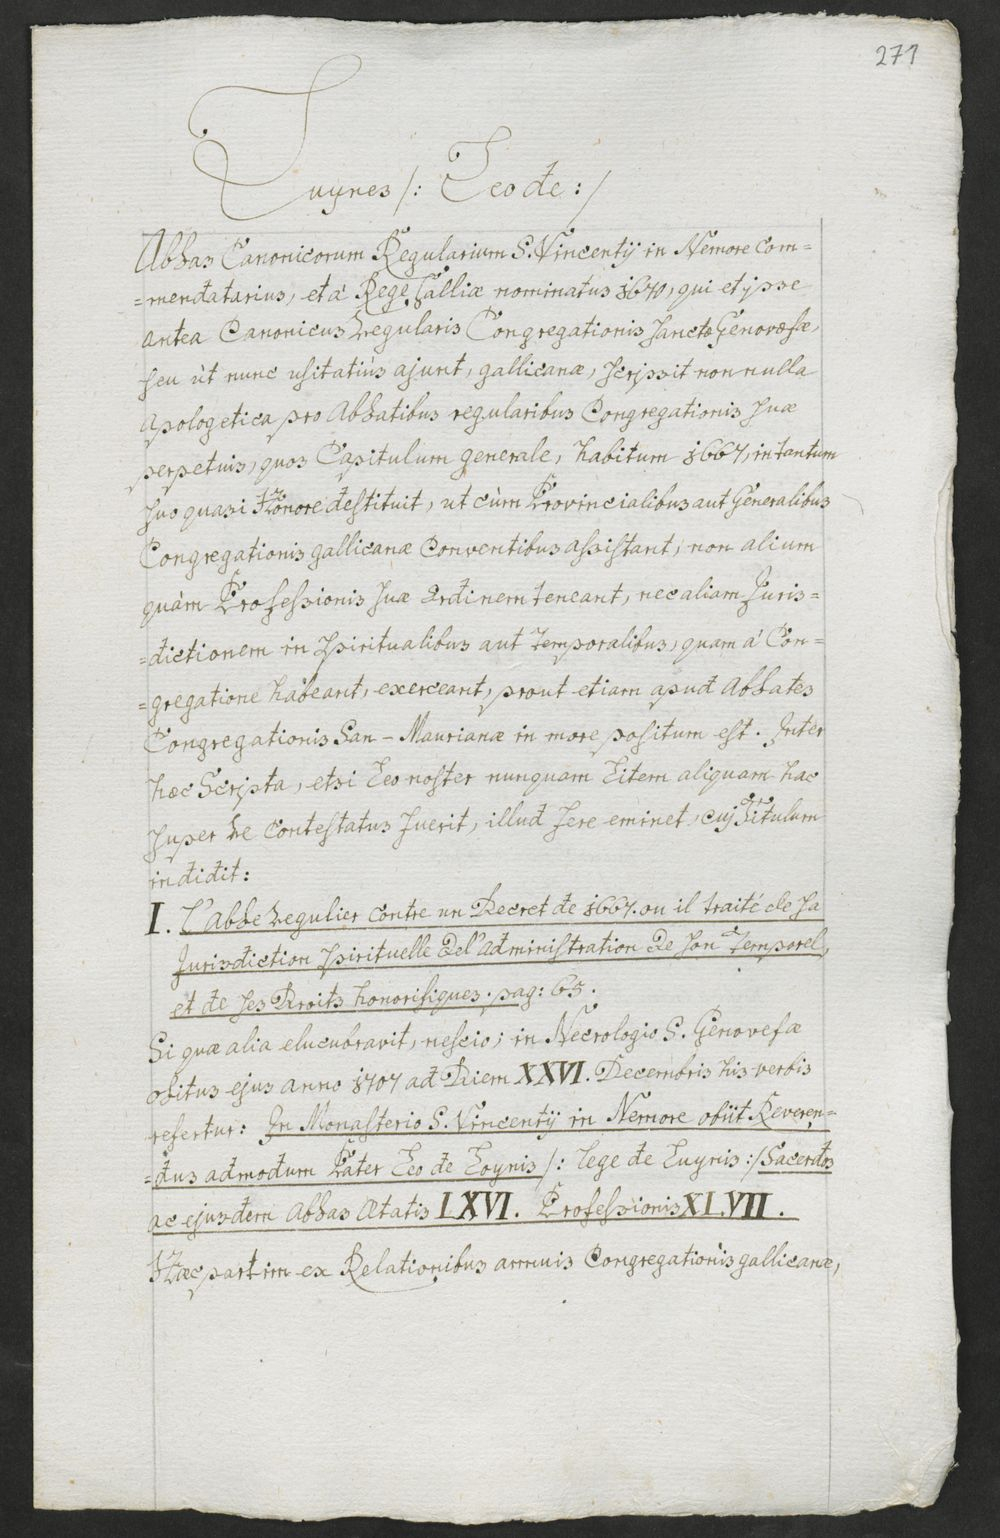 271
Luynes /: Leo de :/
Abbas Canonicorum Regularium S. Vincentij in Nemore com=
=mendatarius, et à Rege Galliæ nominatus 1670, qui et ipse
antea Canonicus regularis Congregationis Sanctæ Genovefæ,
seu ùt nunc usitatiùs ajunt, gallicanæ, scripsit non nulla
apologetica pro Abbatibus regularibus Congregationis suæ
perpetuis, quos Capitulum generale, habitum 1667, in tantum
suo quasi Honore destituit, ut cùm Provincialibus aut Generalibus
Congregationis gallicanæ Conventibus assistant, non alium
quàm Professionis suæ Ordinem teneant, nec aliam Juris=
=dictionem in Spiritualibus aut temporalibus, quam à Con=
=gregatione habeant, exerceant, prout etiam apud Abbates
Congregationis San-Maurianæ in more positum est. Inter
hæc Scripta, etsi Leo noster nunquam Litem aliquam hac
super re contestatus fuerit, illud fere eminet, cuj Titulum
indidit:
I. L'abbe regulier contre un Decret de 1667. ou il traité de sa
Jurisdiction spirituelle del'administration de son Temporel,
et de ses Droits honorifiques. pag: 65.
Si quæ alia elucubravit, nescio; in Necrologio S. Genovefæ
obitus ejus anno 1707 ad Diem XXVI. Decembris his verbis
refertur: In Monasterio S. Vincentij in Nemore obiit Reveren=
=dus admodum Pater Leo de Loynis /: lege de Luynis :/ Sacerdos
ac ejusdem Abbas Ætatis LXVI. Professionis XLVII.
Hæc partim ex Relationibus annuis Congregationis gallicanæ,